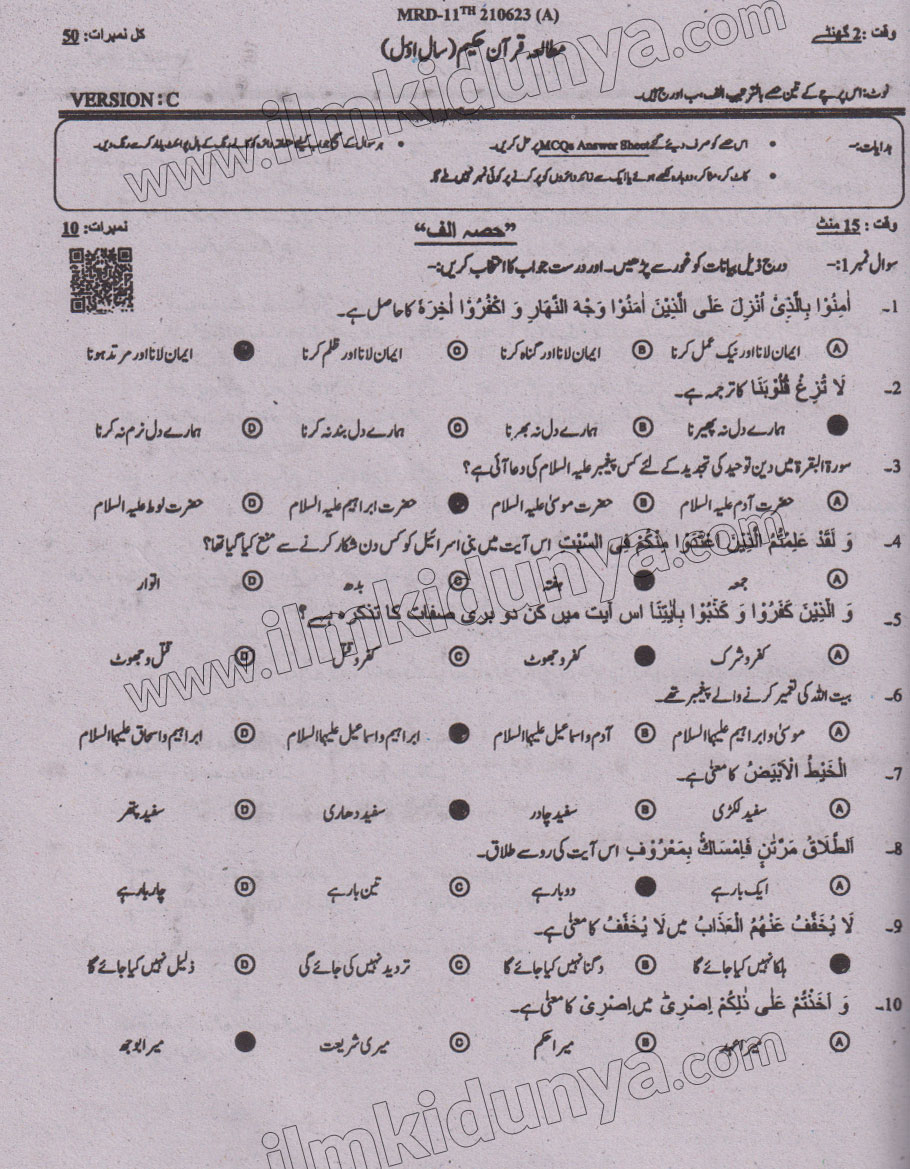 MRD-11TH 210623 (A)
وقت : 2 گھنٹے مطالعہ قرآن حکیم (سال اوّل) کل نمبرات: 50
نوٹ: اس پرچے کے تین حصے بالترتیب الف، ب اور ج ہیں۔ VERSION : C
ہدایات:- • اس حصے کو صرف دیئے گئے MCQs Answer Sheet پر حل کریں۔ • ہر سوال کے
• کاٹ کر، مٹا کر، دوبارہ لکھے ہوئے یا ایک سے زائد دائروں کو پر کرنے پر کوئی نمبر نہیں ملے گا۔
وقت : 15 منٹ ”حصہ الف“ نمبرات: 10
سوال نمبر 1:- درج ذیل بیانات کو غور سے پڑھیں۔ اور درست جواب کا انتخاب کریں:-
1۔ اٰمِنُوْا بِالَّذِیْ اُنْزِلَ عَلَی الَّذِیْنَ اٰمَنُوْا وَجْهَ النَّهَارِ وَ اكْفُرُوْا اٰخِرَهٗ کا حاصل ہے۔
A ایمان لانا اور نیک عمل کرنا B ایمان لانا اور گناہ کرنا C ایمان لانا اور ظلم کرنا ایمان لانا اور مرتد ہونا
2۔ لَا تُزِغْ قُلُوْبَنَا کا ترجمہ ہے۔
ہمارے دل نہ پھیرنا B ہمارے دل نہ بھرنا C ہمارے دل بند نہ کرنا D ہمارے دل نرم نہ کرنا
3۔ سورۃ البقرۃ میں دین توحید کی تجدید کے لئے کس پیغمبر علیہ السلام کی دعا آئی ہے؟
A حضرت آدم علیہ السلام B حضرت موسیٰ علیہ السلام حضرت ابراہیم علیہ السلام D حضرت لوط علیہ السلام
4۔ وَ لَقَدْ عَلِمْتُمُ الَّذِیْنَ اعْتَدَوْا مِنْكُمْ فِی السَّبْتِ اس آیت میں بنی اسرائیل کو کس دن شکار کرنے سے منع کیا گیا تھا؟
A جمعہ ہفتہ C بدھ D اتوار
5۔ وَ الَّذِیْنَ كَفَرُوْا وَ كَذَّبُوْا بِاٰیٰتِنَا اس آیت میں کن دو بری صفات کا تذکرہ ہے؟
A کفر و شرک کفر و جھوٹ C کفر و قتل D قتل و جھوٹ
6۔ بیت اللہ کی تعمیر کرنے والے پیغمبر تھے۔
A موسیٰ و ابراہیم علیہما السلام B آدم و اسماعیل علیہما السلام ابراہیم و اسماعیل علیہما السلام D ابراہیم و اسحاق علیہما السلام
7۔ الْخَیْطُ الْاَبْیَضُ کا معنیٰ ہے۔
A سفید لکڑی B سفید چادر سفید دھاری D سفید پتھر
8۔ اَلطَّلَاقُ مَرَّتٰنِ فَاِمْسَاكٌۢ بِمَعْرُوْفٍ اس آیت کی رو سے طلاق۔
A ایک بار ہے دو بار ہے C تین بار ہے D چار بار ہے
9۔ لَا یُخَفَّفُ عَنْهُمُ الْعَذَابُ میں لَا یُخَفَّفُ کا معنیٰ ہے۔
ہلکا نہیں کیا جائے گا B دگنا نہیں کیا جائے گا C تردید نہیں کی جائے گی D ذلیل نہیں کیا جائے گا
10۔ وَ اَخَذْتُمْ عَلٰی ذٰلِكُمْ اِصْرِیْ میں اِصْرِیْ کا معنیٰ ہے۔
A میرا عہد B میرا حکم C میری شریعت میرا بوجھ
www.ilmkidunya.com
www.ilmkidunya.com
ilmkidunya.com